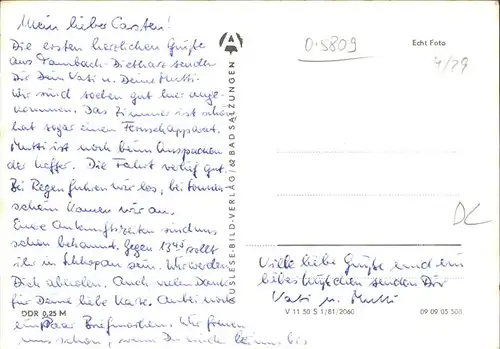 Mein lieber Carsten!
Die ersten herzlichen Grüße
aus Tambach-Dietharz senden
Dir Dein Vati u. Deine Mutti.
Wir sind soeben gut hier ange-
kommen. Das Zimmer ist schön
hat sogar einen Fernsehapparat.
Mutti ist noch beim Auspacken
der Koffer. Die Fahrt verlief gut.
Bei Regen fuhren wir los, bei Sonnen-
schein kamen wir an.
Eure Ankunftszeiten sind uns
schon bekannt. Gegen 13⁴⁵ sollt
ihr in sein. Wir werden
Dich abholen. Auch vielen Dank
für Deine liebe Karte. Anbei noch
ein Paar Briefmarken. Wir freuen
uns schon, wenn Du bei uns bist
DDR 0,25 M
AUSLESE-BILD-VERLAG/62 BAD SALZUNGEN
0.5809
Echt Foto
4/29
Viele liebe Grüße und ein
liebes Küßchen senden Dir
Vati u. Mutti
V 11 50 S 1/81/2060
09 09 05 508